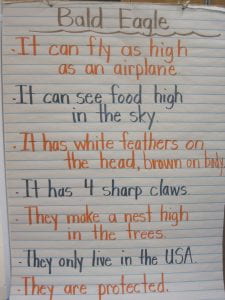 Bald Eagle
·It can fly as high
as an airplane.
·It can see food high
in the sky.
·It has white feathers on
the head, brown on body.
·It has 4 sharp claws
·They make a nest high
in the trees.
·They only live in the USA.
·They are protected.